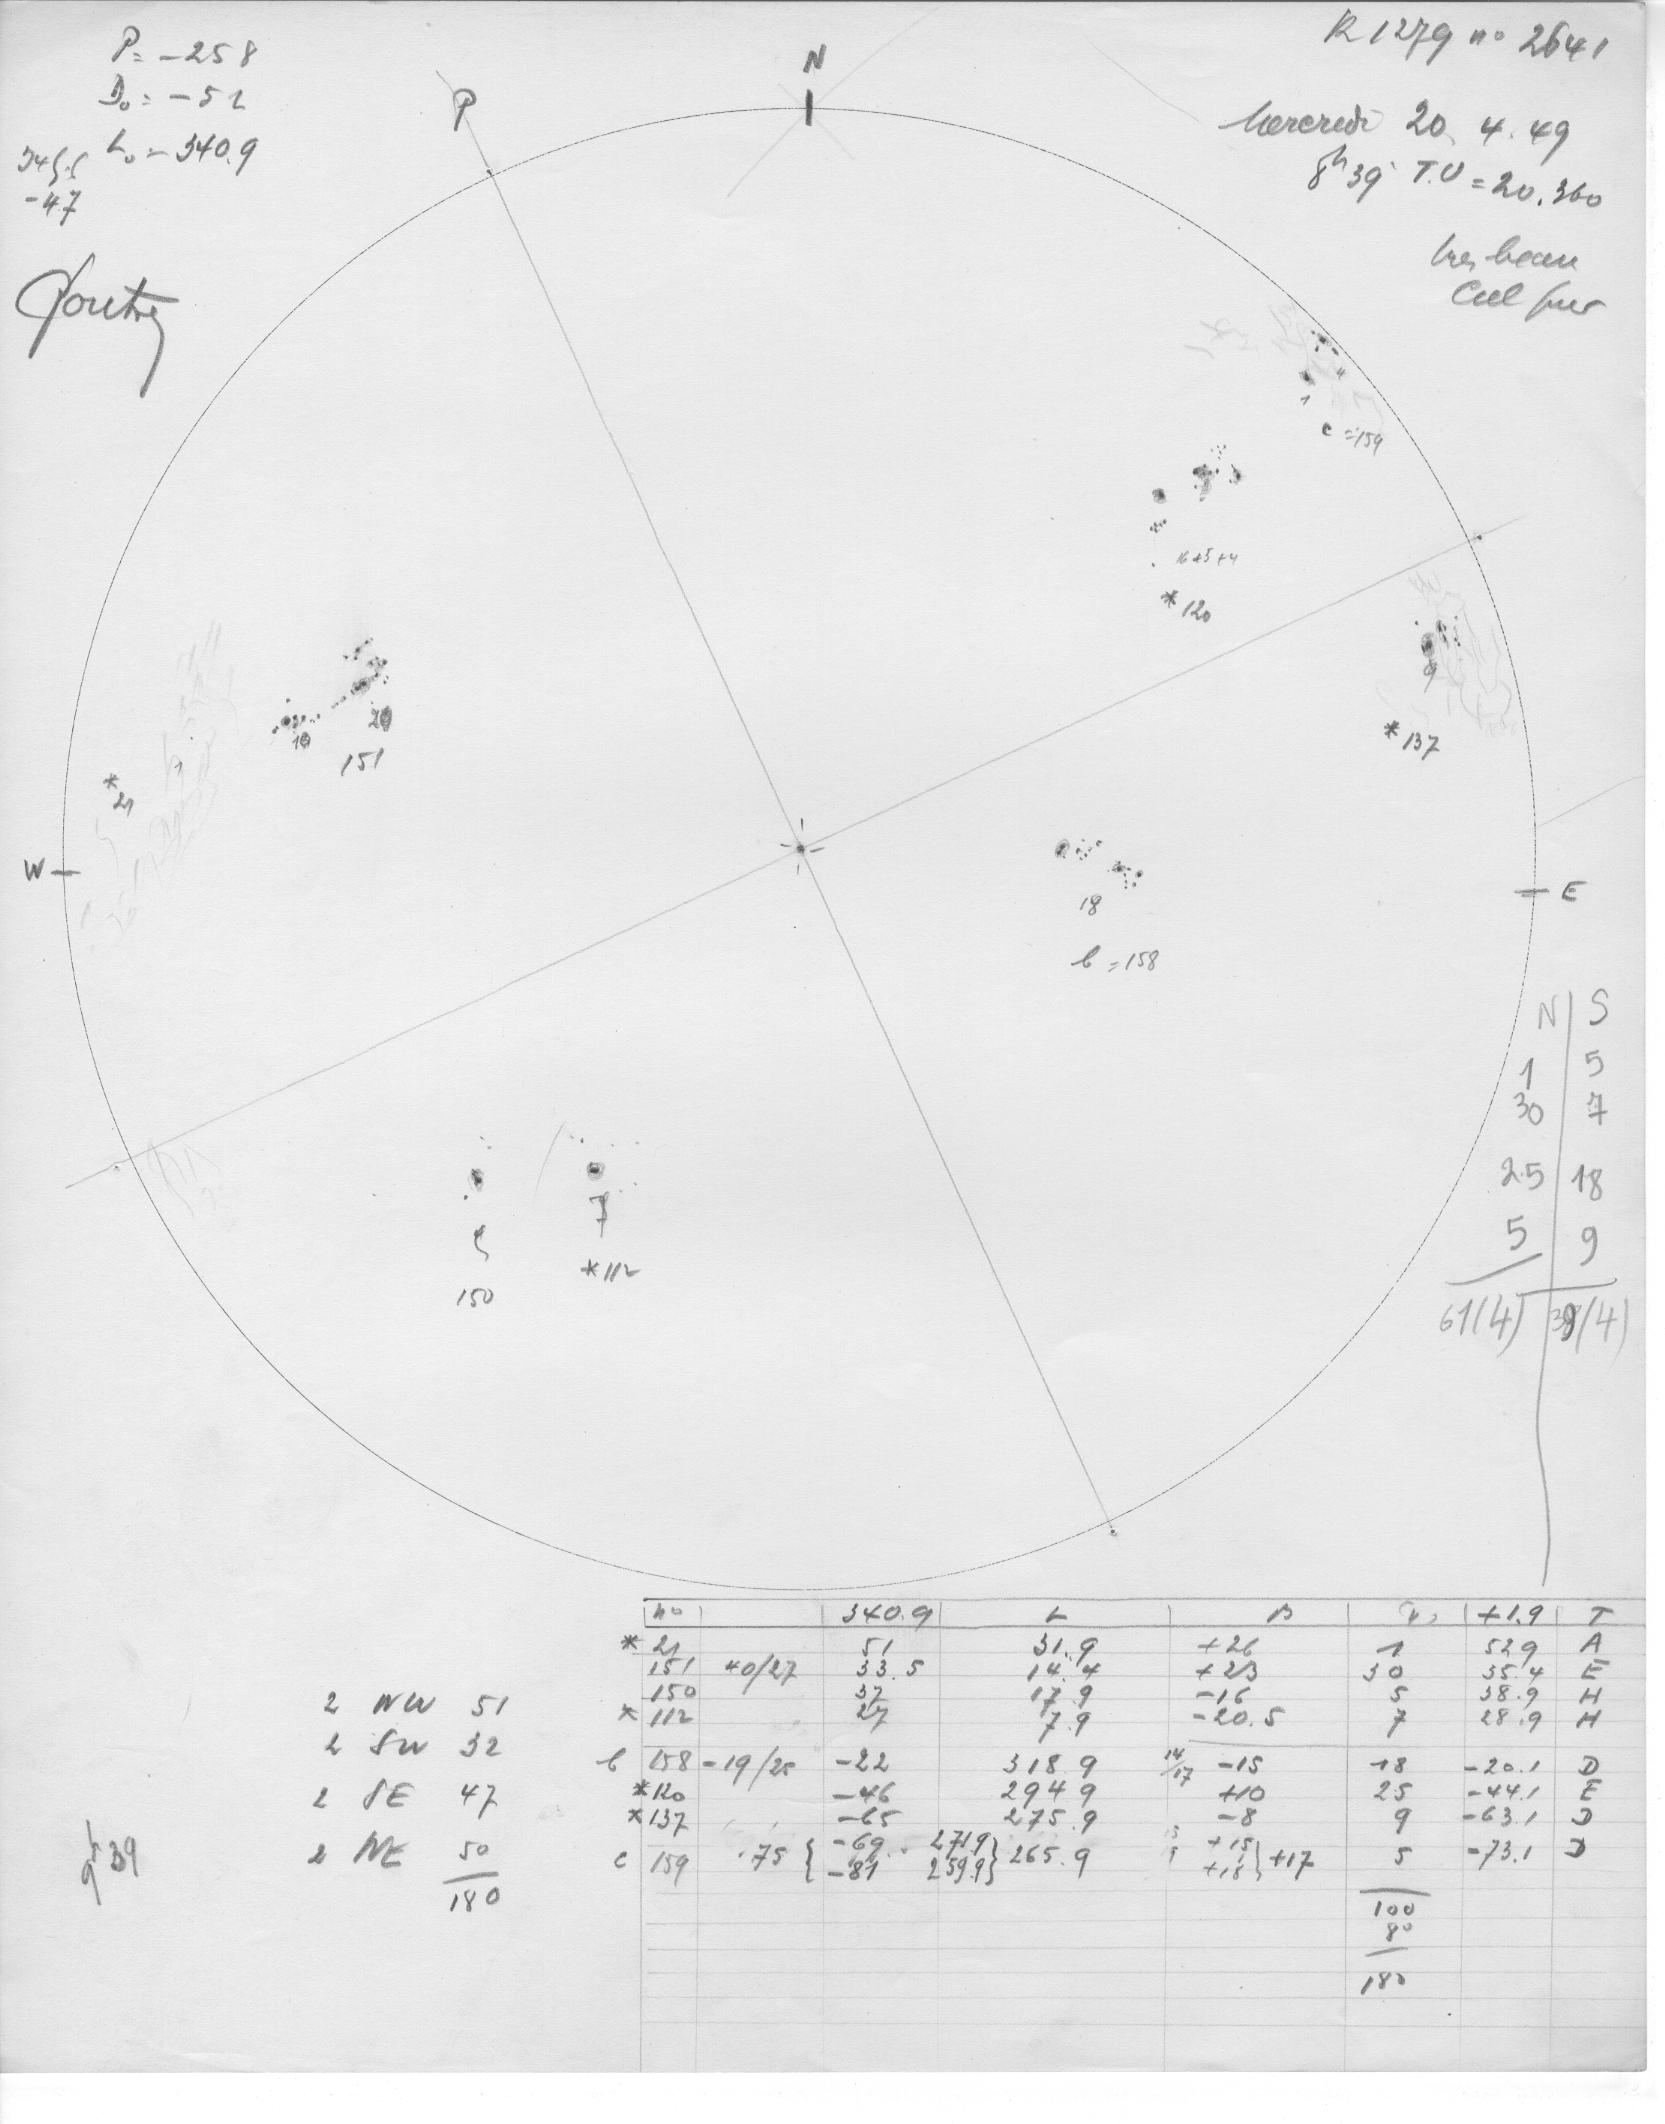 P = -258
D₀ = -52
L₀ = 340.9
-47
N
P
R 1279 n° 2641
Mercredi 20. 4. 49
8h 39 T.U = 20.360
tres beau
Ciel pur
1
4
c = 159
16+5+4
* 120
9
* 137
20
10
151
1
* 21
W
E
18
b = 158
7
5
150
* 112
N | S
1 | 5
30 | 7
25 | 18
5 | 9
61(4) | 39(4)
n° 340.9 L B +1.9 T
* 21 51 31.9 +26 1 52.9 A
151 40/27 33.5 14.4 +23 30 35.4 E
150 37 17.9 -16 5 38.9 H
* 112 27 7.9 -20.5 7 28.9 H
b 158 -19/25 -22 318.9 14/17 -15 18 -20.1 D
* 120 -46 294.9 +10 25 -44.1 E
* 137 -65 275.9 -8 9 -63.1 D
c 159 -75 { -69 271.9 } 265.9 +15 } +17 5 -73.1 D
-81 259.9 +18
100
80
180
2 NW 51
2 SW 32
2 SE 47
2 NE 50
180
9h39